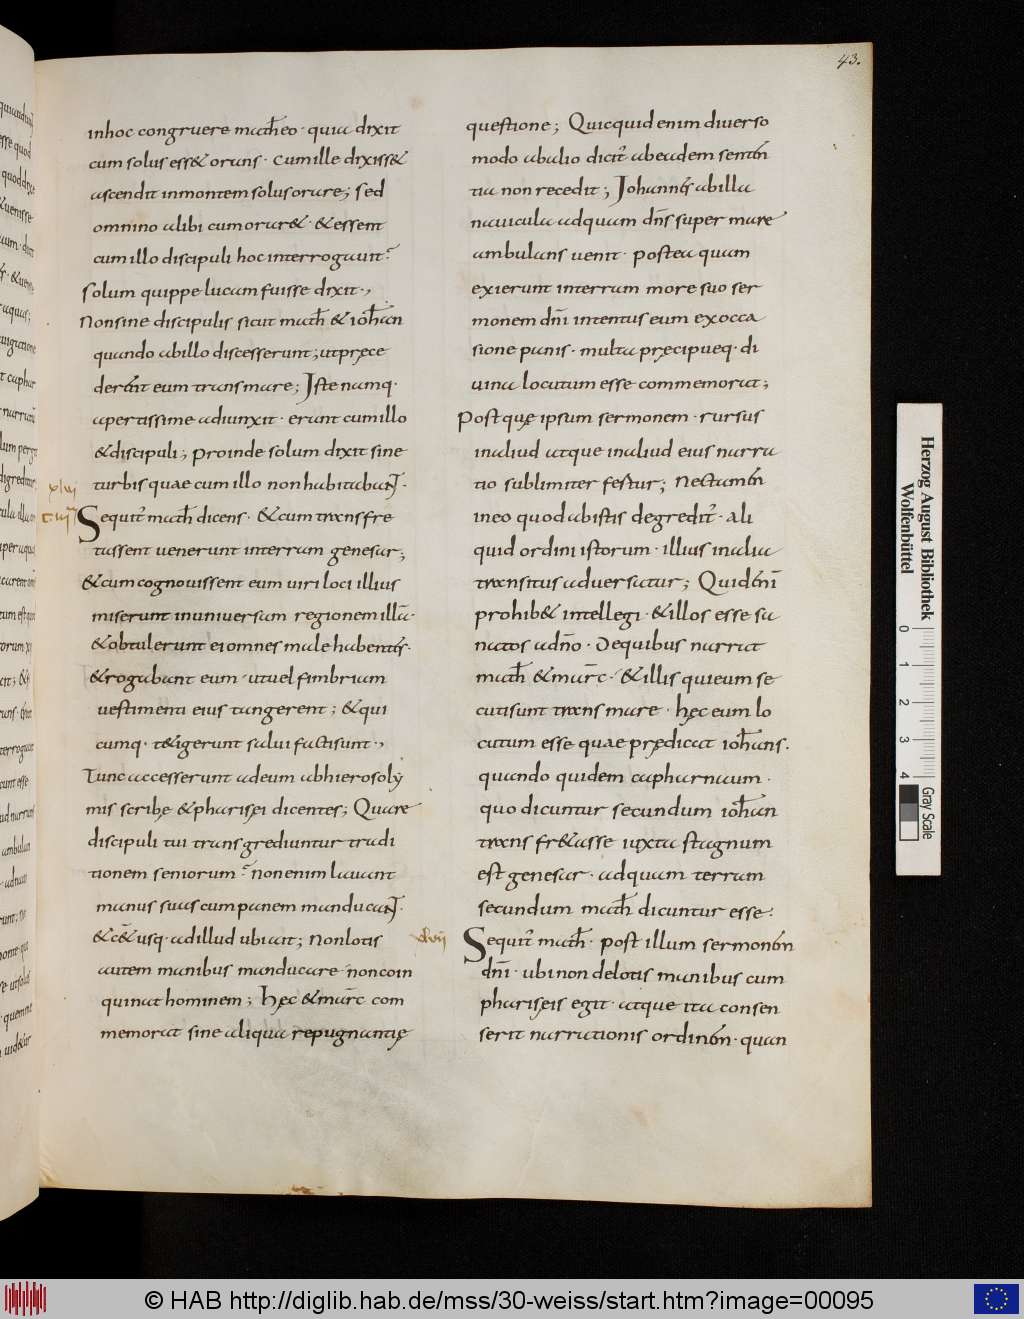 43.
inhoc congruere math̅eo · quia dixit
cum solus ess& orans · Cum ille dixiss&
ascendit inmontem solus orare; sed
omnino alibi cum orar& · & essent
cum illo discipuli hoc interrogauit?
Solum quippe lucam fuisse dixit ·,
Nonsine discipulis sicut math̅ & ioh̅an
quando abillo discesserunt; utpręce
derent eum trans mare; Iste namq·
apertissime adiunxit · erant cum illo
& discipuli; Proinde solum dixit sine
turbis quae cum illo non habitabant ·
xlvi
Sequit̃ math̅ dicens · & cum transfre
tassent uenerunt interram genesar;
& cum cognouissent eum uiri loci illius
miserunt inuniuersam regionem illā ·
& obtulerunt ei omnes male habentes ·
& rogabant eum · utuel fimbriam
uestimenti eius tangerent; & qui
cumq· t&igerunt salui factisunt ·,
Tunc accesserunt adeum abhierosoly̅
mis scribę & pharisęi dicentes; Quare
discipuli tui transgrediuntur tradi
tionem seniorum? non enim lauant
manus suas cum panem manducant ·
& c&̅ usq· adillud ubi ait; Nonlotis
autem manibus manducare non coin
quinat hominem; Hęc & mar̅c com
memorat sine aliqua repugnantię
questione; Quicquid enim diuerso
modo abalio dicit̃ abeadem senten
tia non recedit; Iohannes abilla
nauicula adquam dn̅s super mare
ambulans uenit · postea quam
exierunt interram more suo ser
monem dn̅i intentus eum exocca
sione panis · multa pręcipueq· di
uina locutum esse commemorat;
Post quę ipsum sermonem · rursus
inaliud atque inaliud eius narra
tio sublimiter fertur; Nec tamen
ineo quod abistis degredit̃ · ali
quid ordini istorum · illius inalia
transitus aduersatur; Quid en̅i̅
prohib& intellegi · & illos esse sa
natos adn̅o · De quibus narrat
math̅ & mar̅c · & illis quieum se
cutisunt trans mare · hęc eum lo
cutum esse quae prędicat ioh̅ans.
quando quidem capharnaum ·
quo dicuntur secundum ioh̅an
trans fr&asse iuxta stagnum
est genesar · adquam terram
secundum math̅ dicuntur esse:
xlvii
Sequit̃ math̅ · post illum sermonem
dn̅i · ubi non delotis manibus cum
pharisęis egit · atque ita consen
serit narrationis ordinem · quan
Herzog August Bibliothek
Wolfenbüttel
0 1 2 3 4
Gray Scale
© HAB http://diglib.hab.de/mss/30-weiss/start.htm?image=00095